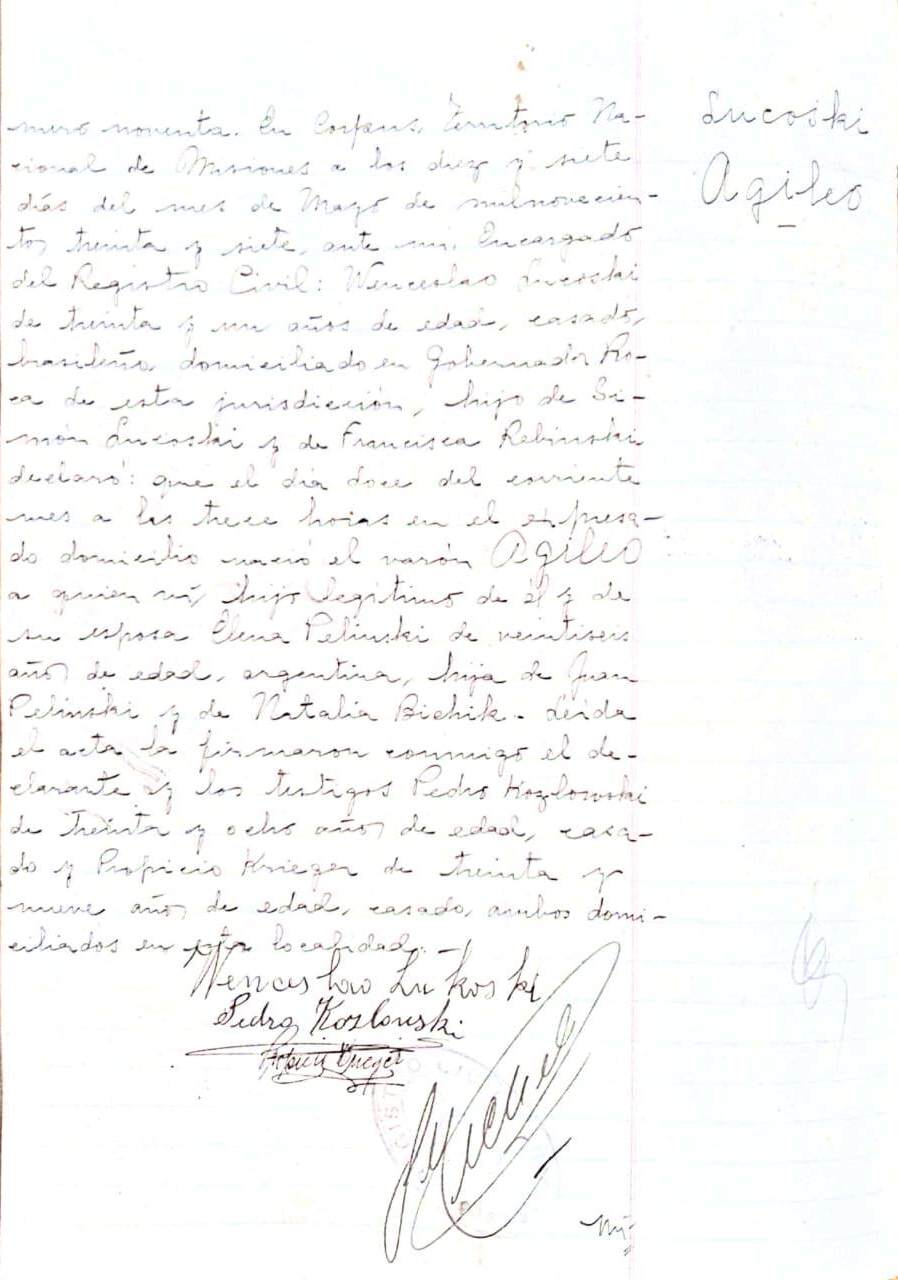 mero noventa. En Corpus, Territorio Na-
cional de Misiones a los diez y siete
días del mes de Mayo de milnovecien-
tos treinta y siete, ante mi, Encargado
del Registro Civil: Wenceslao Lucoski
de treinta y un años de edad, casado,
brasileño domiciliado en Gobernador Ro-
ca de esta jurisdicción, hijo de Si-
món Lucoski y de Francisca Rebinski
declaró: que el día doce del corriente
mes a las trece horas en el expresa-
do domicilio nació el varón Agileo
a quien ví, hijo legítimo de él y de
su esposa Elena Pelinski de veintiseis
años de edad, argentina, hija de Juan
Pelinski y de Natalia Bichik. Leída
el acta la firmaron conmigo el de-
clarante y los testigos Pedro Kozlowski
de treinta y ocho años de edad, casa-
do y Propicio Krieger de treinta y
nueve años de edad, casado, ambos domi-
ciliados en esta localidad.-
Wenceslao Lukoski
Pedro Kozlouski
Lucoski
Agileo